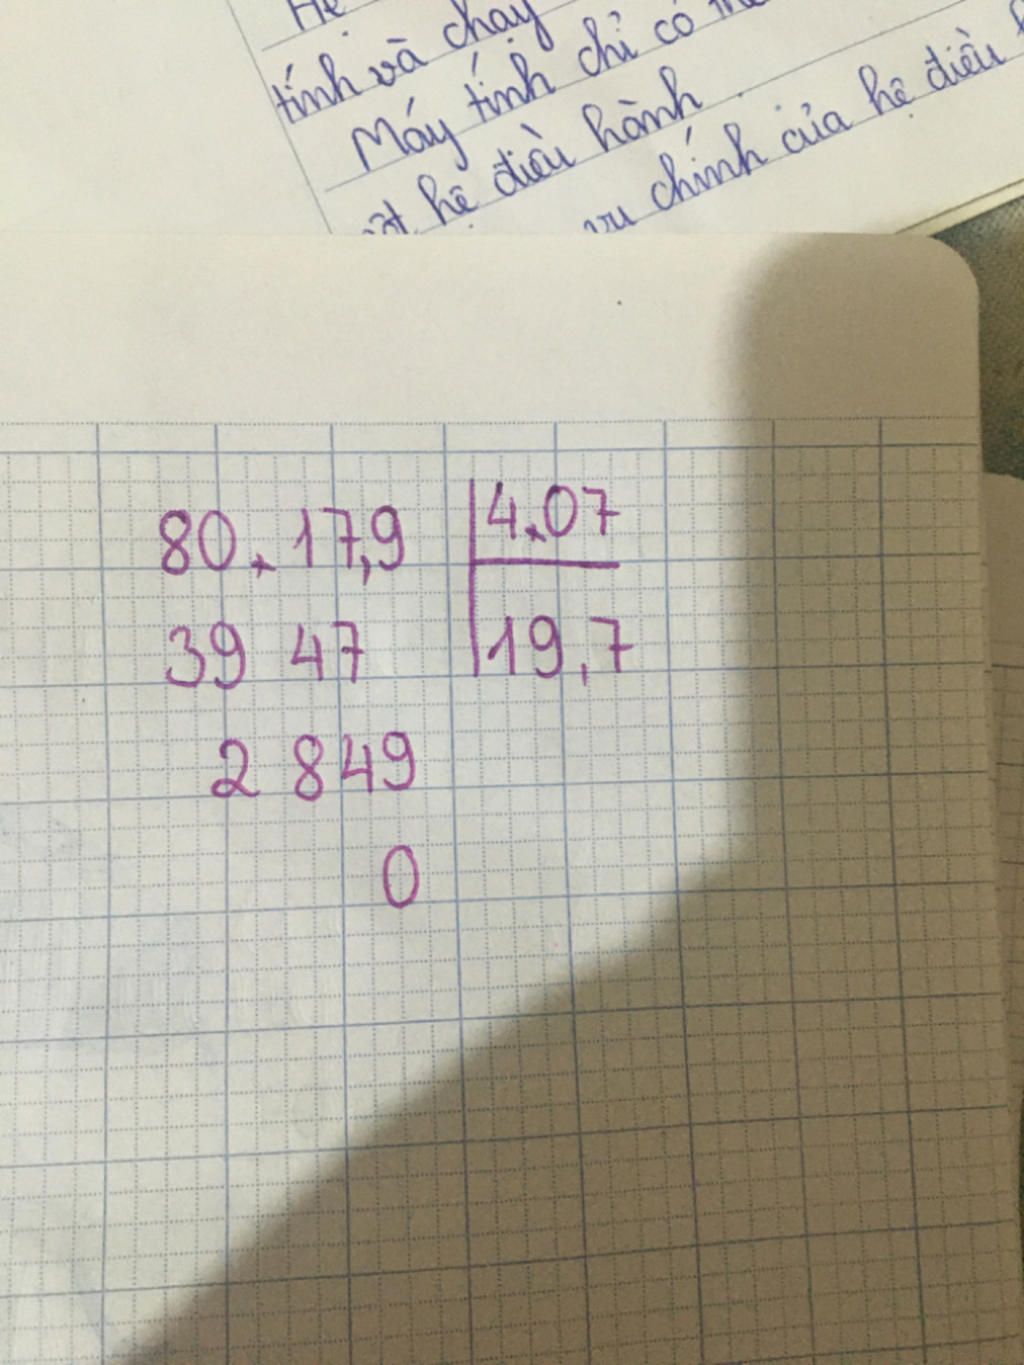 Hệ
tính và chạy
Máy tính chỉ có
hệ điều hành.
chính của hệ điều
80,17,9 4,07
39 47 19,7
2 849
0